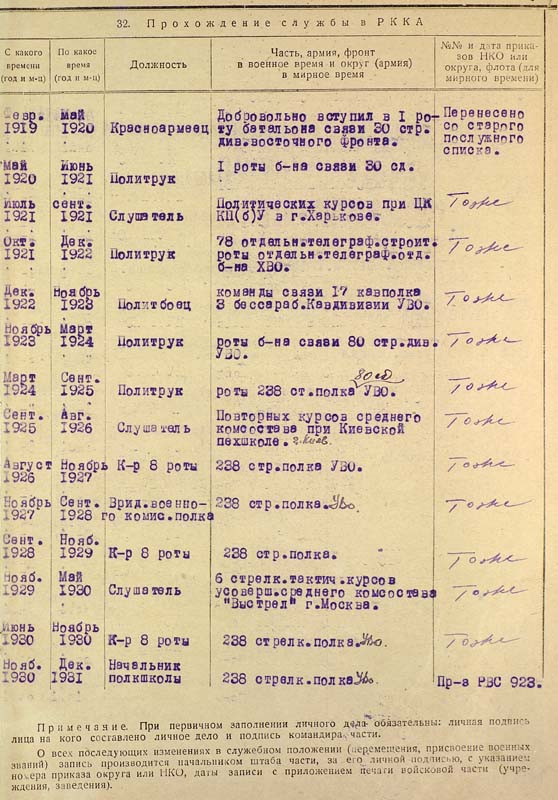 32. Прохождение службы в РККА
С какого времени (год и м-ц) | По какое время (год и м-ц) | Должность | Часть, армия, фронт в военное время и округ (армия) в мирное время | №№ и дата приказов НКО или округа, флота (для мирного времени)
Февр. май Добровольно вступил в I ро- Перенесено
1919 1920 Красноармеец ту батальона связи 30 стр. со старого
див.восточного фронта. послужного
списка.
Май Июнь I роты б-на связи 30 сд.
1920 1921 Политрук
Июль сент. Политических курсов при ЦК Тоже
1921 1921 Слушатель КП(б)У в г.Харькове.
Окт. Дек. 78 отдельн.телеграф.строит. Тоже
1921 1922 Политрук роты отдельн.телеграф.отд.
б-на ХВО.
Дек. Ноябрь команды связи 17 кавполка Тоже
1922 1923 Политбоец 3 бессараб.Кавдивизии УВО.
Ноябрь Март
1923 1924 Политрук роты б-на связи 80 стр.див. Тоже
УВО.
Март Сент. 80 сд
1924 1925 Политрук роты 238 ст.полка УВО. Тоже
Сент. Авг. Повторных курсов среднего Тоже
1925 1926 Слушатель комсостава при Киевской
пехшколе. г. Киев.
Август Ноябрь К-р 8 роты 238 стр.полка УВО. Тоже
1926 1927
Ноябрь Сент. Врид.военно- 238 стр.полка. Уво. Тоже
1927 1928 го комис.полка
Сент. Нояб.
1928 1929 К-р 8 роты 238 стр.полка. Тоже
Нояб. Май 6 стрелк.тактич.курсов
1929 1930 Слушатель усоверш.среднего комсостава Тоже
"Выстрел" г.Москва.
Июнь Ноябрь
1930 1930 К-р 8 роты 238 стрелк.полка. Уво. Тоже
Нояб. Дек. Начальник
1930 1931 полкшколы 238 стрелк.полка Уво. Пр-з РВС 923.
Примечание. При первичном заполнении личного дела обязательны: личная подпись
лица на кого составлено личное дело и подпись командира части.
О всех последующих изменениях в служебном положении (перемещения, присвоение военных
званий) запись производится начальником штаба части, за его личной подписью, с указанием
номера приказа округа или НКО, даты записи с приложением печати войсковой части (учре-
ждения, заведения).